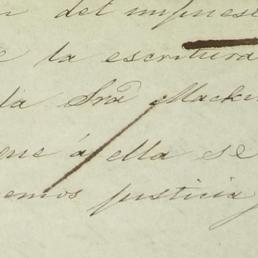 del impues
e la escritura
la Sra Mackin
que á ella se
emos justicia,